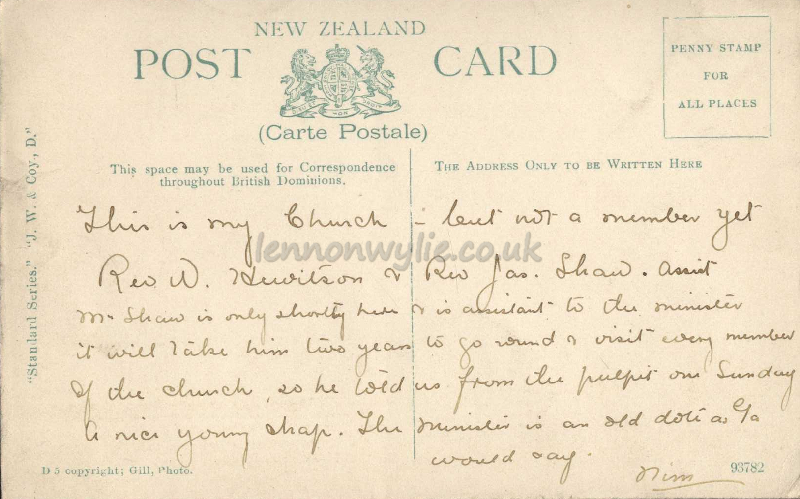 NEW ZEALAND
POST CARD
(Carte Postale)
PENNY STAMP
FOR
ALL PLACES
This space may be used for Correspondence
throughout British Dominions.
THE ADDRESS ONLY TO BE WRITTEN HERE
"Standard Series." "J. W. & Coy., D."
This is my Church - but not a member yet
lennonwylie.co.uk
Rev D. Hewitson & Rev Jas. Shaw. Assist
Mr Shaw is only shortly here & is assistant to the minister
it will take him two years to go round & visit every member
of the church, so he told us from the pulpit one Sunday
A nice young chap. The minister is an old dote as
would say.
D 5 copyright; Gill, Photo.
93782